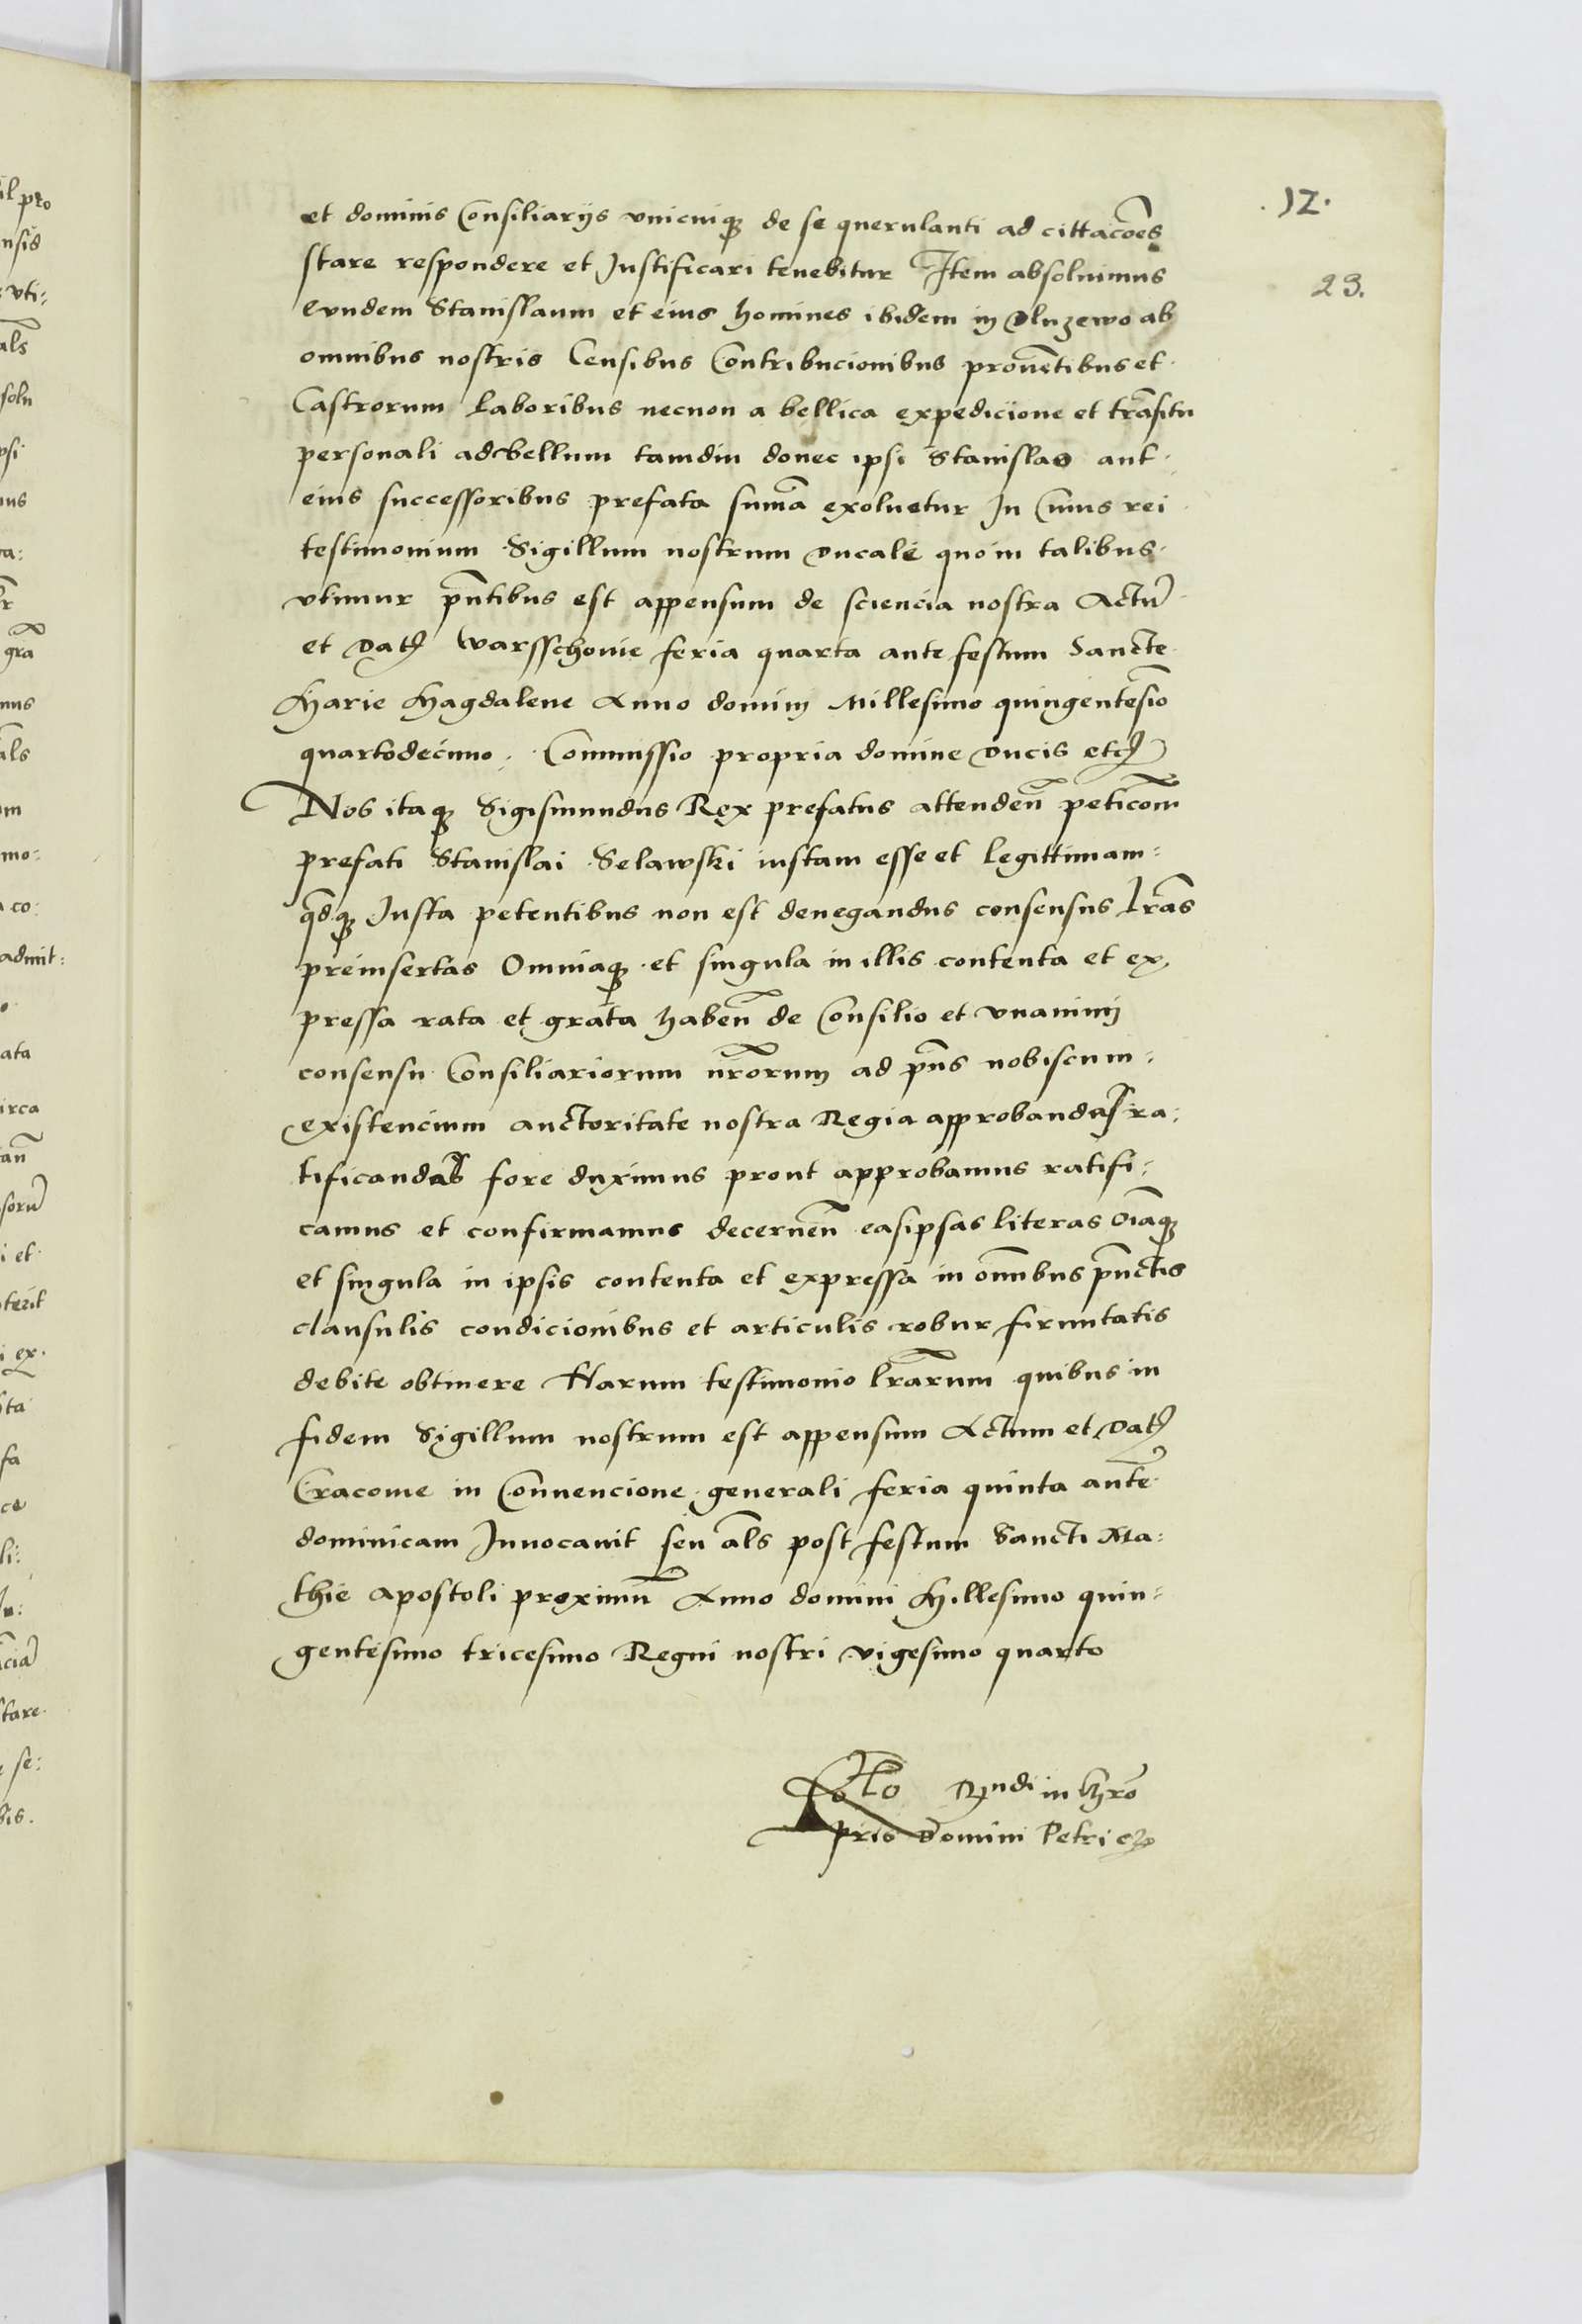 .12.
23.
et dominis Consiliarijs vnicuiqȝ de se querulanti ad cittacōes
stare respondere et Justificari tenebitur Item absoluimus
eundem Stanislaum et eius homines ibidem in Dluzewo ab
omnibus nostris Censibus Contribucionibus prouētibus et
Castrorum laboribus necnon a bellica expedicione et trāsitu
personali ad bellum tamdiu donec ipsi Stanislao aut
eius successoribus prefata sumā exoluetur In Cuius rei
testimonium Sigillum nostrum Ducale quo in talibus
vtimur pn̄tibus est appensum de sciencia nostra Actū
et Datꝫ Warsschouie feria quarta ante festum Sancte
Marie Magdalene Anno domini Millesimo quingentesīo
quartodecimo Commissio propria domine Ducis etcꝫ
Nos itaqȝ Sigismundus Rex prefatus attenden̄ peticōm
prefati Stanislai Selawski iustam esse et legittimam
q̄dqȝ Justa petentibus non est denegandus consensus lr̄as
preinsertas Omniaqȝ et singula in illis contenta et ex
pressa rata et grata haben̄ de Consilio et vnanimi
consensu Consiliariorum nr̄orum ad pn̄s nobiscum
existencium auctoritate nostra Regia approbandas ra:
tificandas fore duximus prout approbamus ratifi:
camus et confirmamus decernen̄ easipsas literas oīaqȝ
et singula in ipsis contenta et expressa in om̄ibus pūctis
clausulis condicionibus et articulis robur firmitatis
debite obtinere Harum testimonio lr̄arum quibus in
fidem Sigillum nostrum est appensum Actum et Datꝫ
Cracouie in Conuencione generali feria quinta ante
dominicam Inuocauit seu als̄ post festum Sancti Ma:
thie apostoli proximū Anno domini Millesimo quin:
gentesimo tricesimo Regni nostri vigesimo quarto
Rndi in Chro
pris Domini Petri